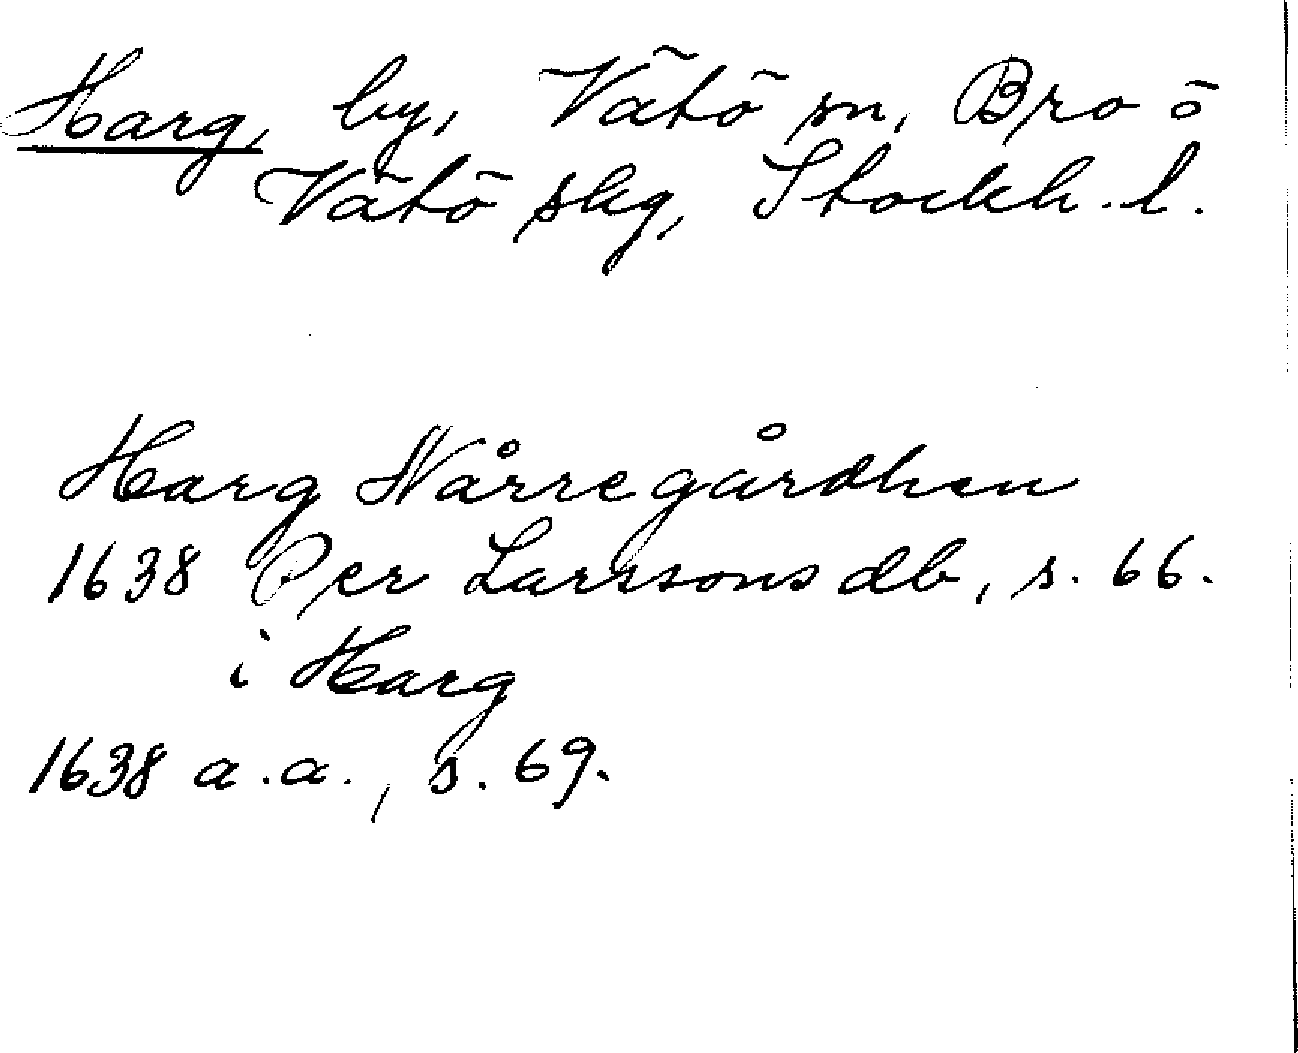 Harg, by, Vätö sn, Bro o
Vätö skg, Stockh. l.
Harg Nårregårdhen
1638 Per Larssons db, s. 66.
i Harg
1638 a.a., s. 69.